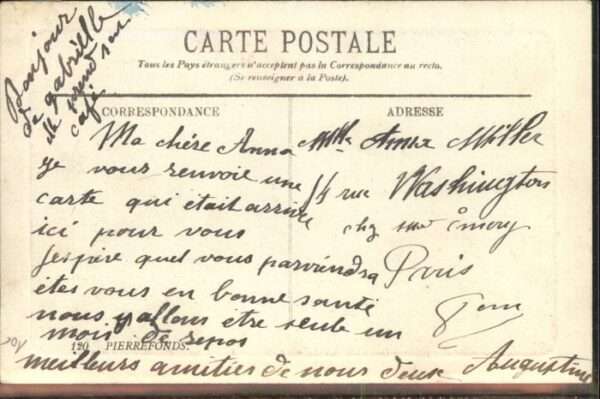 Bonjour
de gabrielle
elle prend son
café
CARTE POSTALE
Tous les Pays étrangers n'acceptent pas la Correspondance au recto.
(Se renseigner à la Poste).
CORRESPONDANCE
Ma chére Anna
Je vous renvoie une
carte qui était arrivé
ici pour vous
Jespére quel vous parviendra
étes vous en bonne santé
nous y allons étre seule un
mois de repos
meilleurs amitiés de nous deux Augustine
ADRESSE
Mlle Anna Müller
14 rue Washington
chez mme
Paris
120 PIERREFONDS.